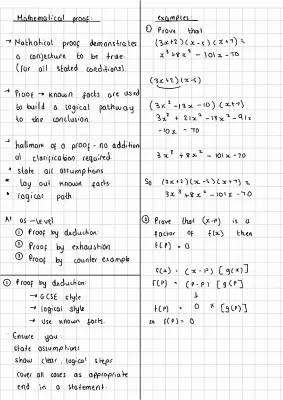 Mathematical proof:
→ Mathatical proof demonstrates
a conjecture to be true
(for all stated conditions).
→ Proof → known facts are used
to build a logical pathway
to the conclusion.
→ hallmark of a proof - no addition
al clarification required
* state all assumptions
* lay out known facts
* logical path
At as-level
① Proof by deduction
② Proof by exhaustion
③ Proof by counter example
① Proof by deduction:
→ GCSE style
→ logical style
→ use known facts.
Ensure you:
state assumptions
show clear, logical steps
cover all cases as appropriate
end in a statement.
examples
① Prove that
(3x+2)(x-5)(x+7) =
x³+8x²-101x-70
(3x+2)(x-5)
(3x²-13x-10)(x+7)
3x³ + 21x² - 13x² - 91x
-10x - 70
3x³ + 8x² - 101x - 70
So (3x+2)(x-5)(x+7) =
3x³+8x²-101x-70
② Prove that (x-p) is a
factor of f(x) then
f(p) = 0
f(x) = (x-p) [g(x)]
f(p) = (p-p) [g(p)
↓
f(p) = 0 × [g(p)]
so f(p) = 0